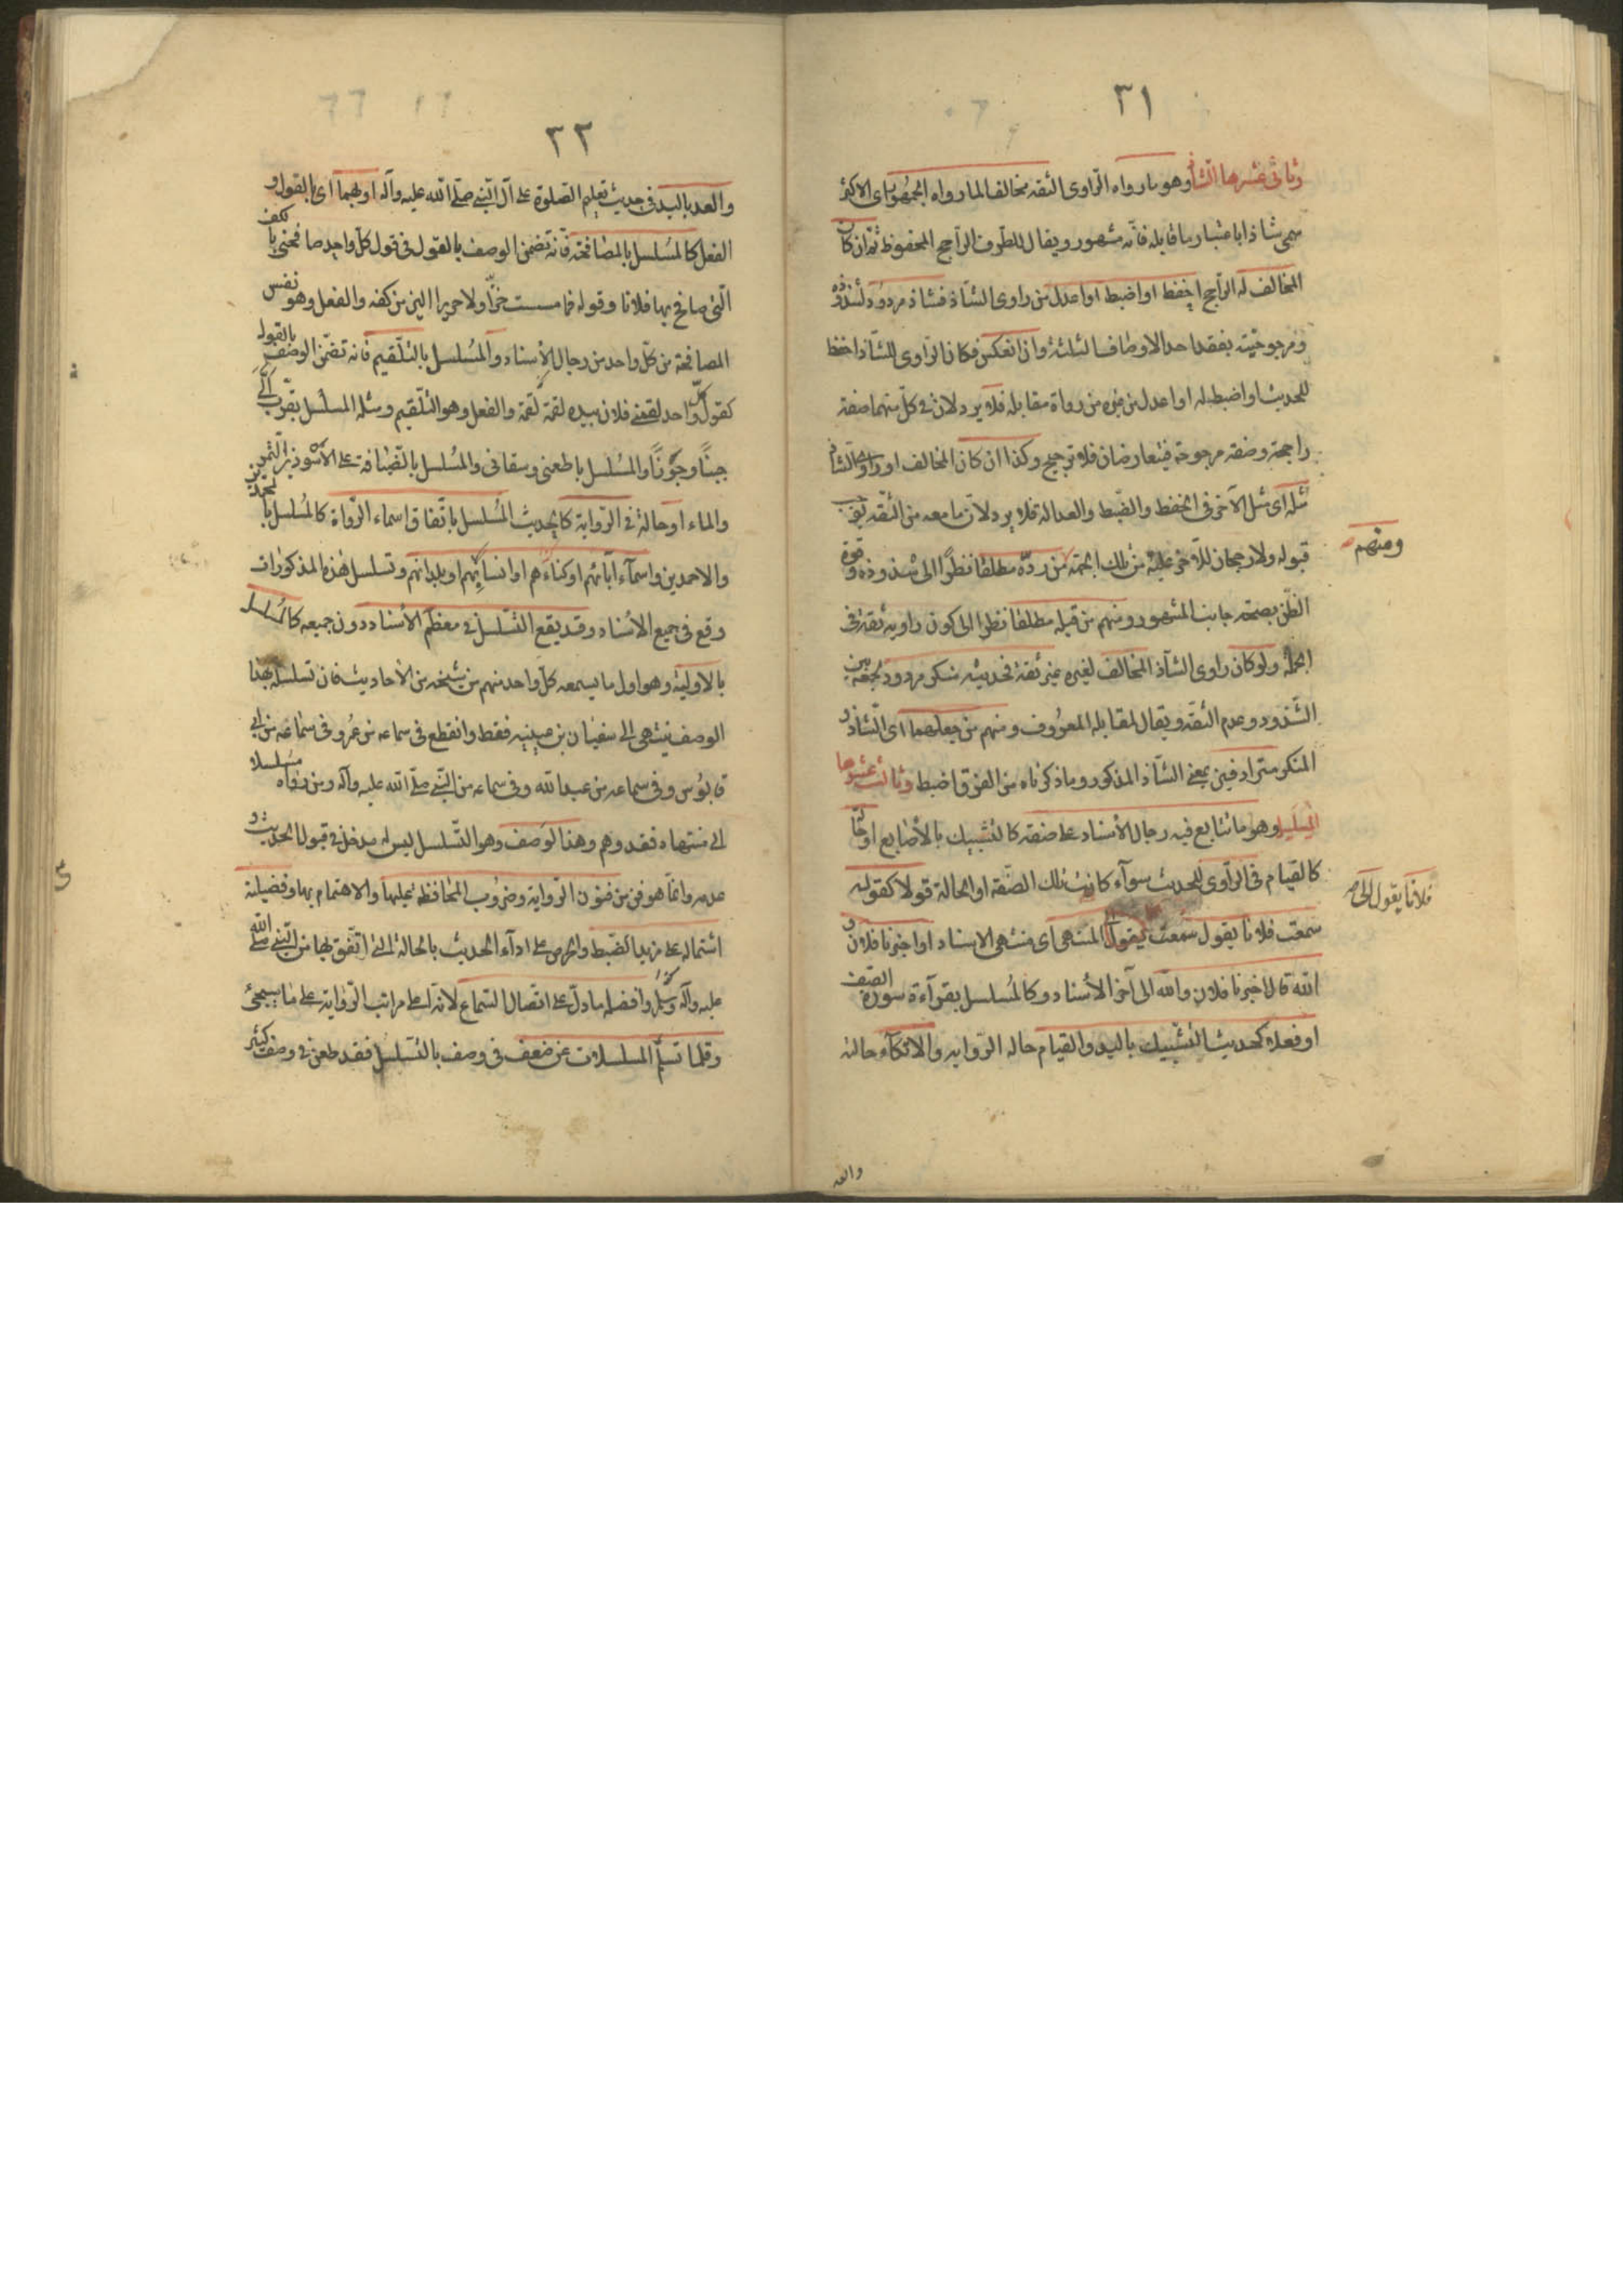 ٣١
وثانى عشرها الشاذ وهو ما رواه الراوى الثقة مخالفا لما رواه الجمهور اى الاكثر
سمى شاذا باعتبار ما قابله فانه مشهور ويقال للطرف الراجح المحفوظ ثم ان كان
المخالف له الراجح احفظ او اضبط او اعدل من راوى الشاذ فشاذ مردود لشذوذه
ومرجوحيته بفقد احد الاوصاف الثلثة وان انعكس فكان الراوى للشاذ احفظ
للحديث او اضبط له او اعدل من غيره من رواة مقابله فلا يرد لان فى كل منهما صفة
راجحة وصفة مرجوحة فيتعارضان فلا ترجيح وكذا ان كان المخالف او راوى الشاذ
مثله اى مثل الآخر فى الحفظ والضبط والعدالة فلا يرد لان ما معه من الثقة يوجب
قبوله ولا رجحان للآخر عليه من تلك الجهة من رده مطلقا نظرا الى شذوذه وقوة
ومنهم
الظن بصحة جانب المشهور ومنهم من قبله مطلقا نظرا الى كون راويه ثقة فى
الجملة ولو كان راوى الشاذ المخالف لغيره غير ثقة فحديثه منكر مردود لجمعه بين
الشذوذ وعدم الثقة ويقال لمقابله المعروف ومنهم من جعلهما اى الشاذ و
المنكر مترادفين بمعنى الشاذ المذكور وما ذكرناه من الفرق اضبط وثالث عشرها
المسلسل وهو ما تتابع فيه رجال الاسناد على صفة كالتشبيك بالأصابع او حالة
كالقيام فى الراوى للحديث سواء كانت تلك الصفة او الحالة قولا كقوله
سمعت فلانا يقول سمعت يقول المنتهى اى منتهى الاسناد او اخبرنا فلان و
فلانا يقول الى
الله قال اخبرنا فلان والله الى آخر الأسناد وكالمسلسل بقرآءة سورة الصف
او فعلا كحديث التشبيك باليد والقيام حالة الرواية والاتكآء حالته
والعد
٣٢
والعد باليد فى حديث تعليم الصلوة على آل النبى صلى الله عليه وآله او بهما اى بالقول و
الفعل كالمسلسل بالمصافحة فانه تضمن الوصف بالقول فى قول كل واحد صافحنى بالكف
التى صافح بها فلانا وقوله فما مسست خزا ولا حريرا الين من كفه والفعل وهو نفس
المصافحة من كل واحد من رجال الأسناد والمسلسل بالتلقيم فانه تضمن الوصف بالقول
كقول كل واحد لقمنى فلان بيده لقمة لقمة والفعل وهو التلقيم ومثله المسلسل بقرب الى
جبنا وجوزا والمسلسل باطعمنى وسقانى والمسلسل بالضيافة على الأسودين التمر
والماء او حالة فى الرواية كالحديث المسلسل باتفاق اسماء الرواة كالمسلسل بالمحمدين
والاحمدين واسمآء آبائهم او كناءهم او انسابهم او بلدانهم وتسلسل هذه المذكورات
وقع فى جميع الاسناد وقد يقع التسلسل فى معظم الأسناد دون جميعه كالمسلسل
بالاولية وهو اول ما يسمعه كل واحد منهم من شيخه من الأحاديث فان تسلسله بهذا
الوصف ينتهى الى سفيان بن عيينة فقط وانقطع فى سماعه من عمرو فى سماعه من ابى
قابوس وفى سماعه من عبد الله وفى سماعه من النبى صلى الله عليه وآله ومن رواه مسلسلا
الى منتهاه فقد وهم وهذا الوصف وهو التسلسل ليس له مدخل فى قبول الحديث و
عدمه وانما هو فن من فنون الرواية وضروب المحافظة عليها والاهتمام بها وفضيلته
اشتماله على مزيد الضبط والحرص على ادآء الحديث بالحالة التى اتفق بها من النبى صلى الله
عليه وآله وسلم وافضله ما دل على اتصال السماع لانه اعلى مراتب الرواية على ما سيجئ
وقلما تسلم المسلسلات عن ضعف فى وصف بالتسلسل فقد طعن فى وصف كثير